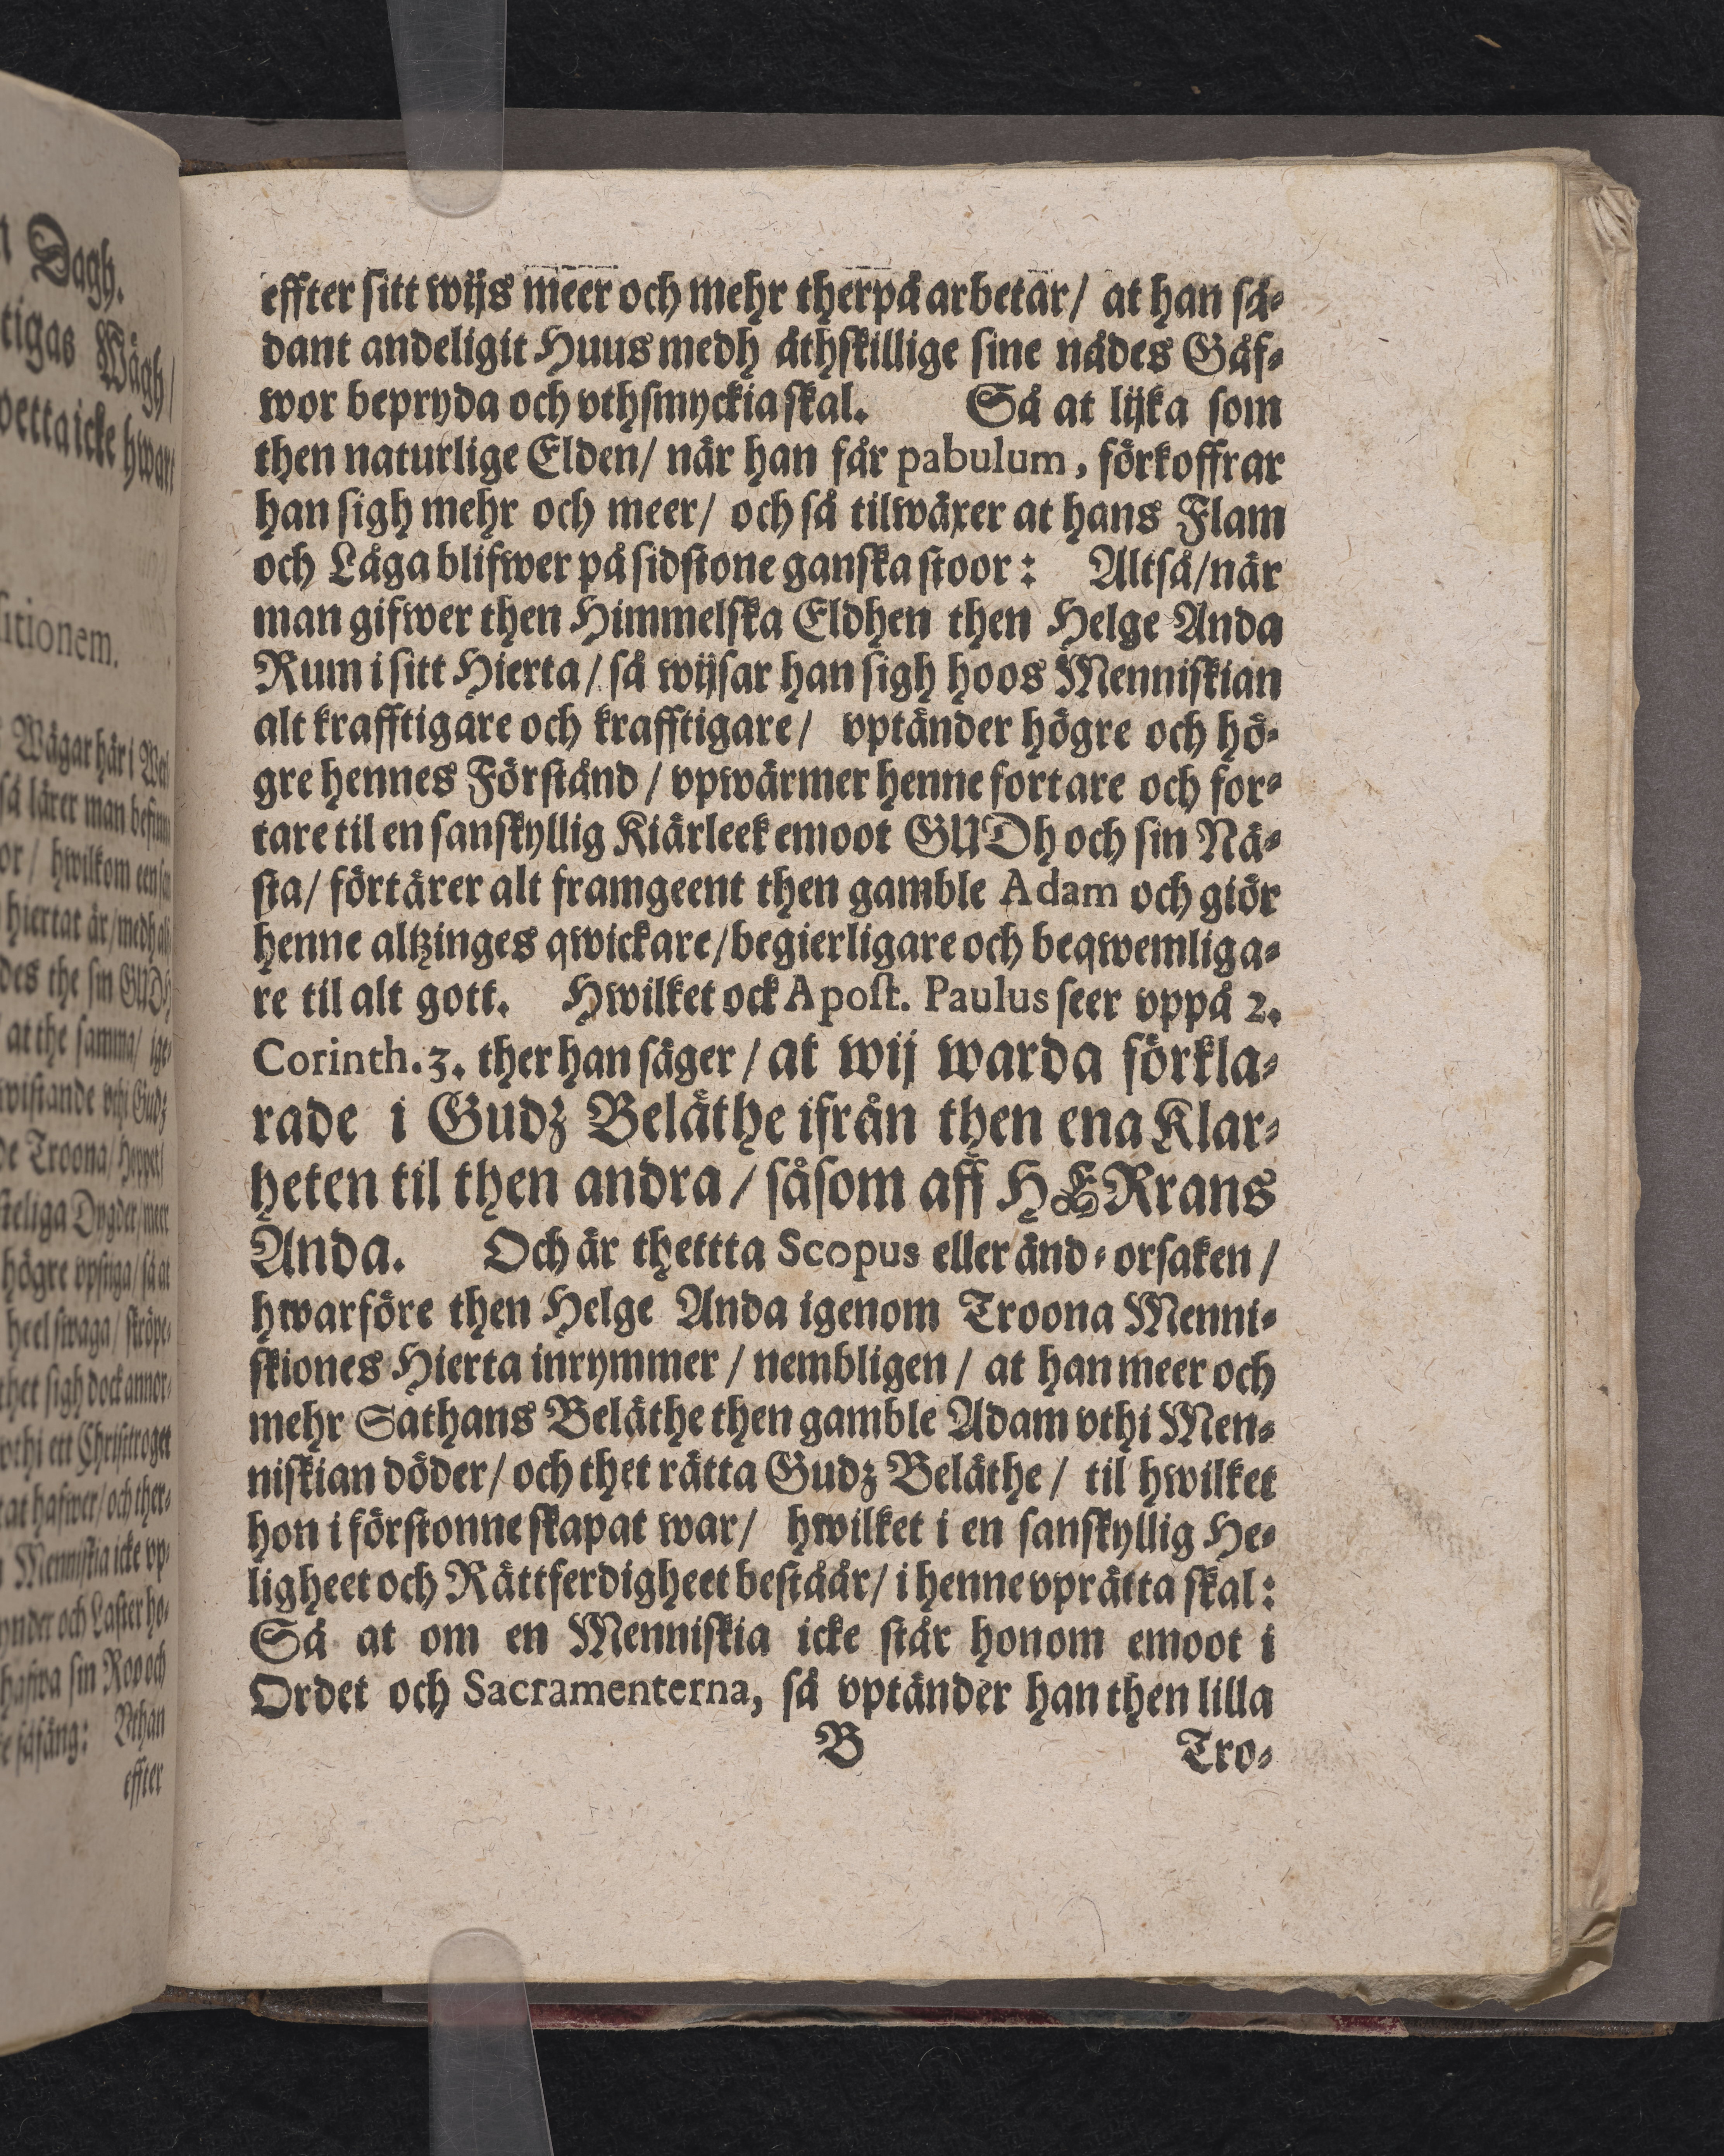 effter sitt wijs meer och mehr therpå arbetar/ at han så-
dant andeligit Huus medh åthskillige sine nådes Gåf-
wor bepryda och vthsmyckia skal. Så at lijka som
then naturlige Elden/ när han får pabulum, förkoffrar
han sigh mehr och meer/ och så tilwäxer at hans Flam
och Låga blifwer på sidstone ganska stoor: Altså/ när
man gifwer then Himmelska Eldhen then Helge Anda
Rum i sitt Hierta/ så wijsar han sigh hoos Menniskian
alt krafftigare och krafftigare/ vptänder högre och hö-
gre hennes Förstånd/ vpwärmer henne fortare och for-
tare til en sanskyllig Kiärleek emoot GUDh och sin Nä-
sta/ förtärer alt framgeent then gamble Adam och giör
henne altzinges qwickare/ begierligare och beqwemliga-
re til alt gott. Hwilket ock Apost. Paulus seer vppå 2.
Corinth. 3. ther han säger/ at wij warda förkla-
rade i Gudz Beläthe ifrån then ena Klar-
heten til then andra/ såsom aff HERrans
Anda. Och är thettta Scopus eller änd-orsaken/
hwarföre then Helge Anda igenom Troona Menni-
skiones Hierta inrymmer/ nembligen/ at han meer och
mehr Sathans Beläthe then gamble Adam vthi Men-
niskian döder/ och thet rätta Gudz Beläthe/ til hwilket
hon i förstonne skapat war/ hwilket i en sanskyllig He-
ligheet och Rättferdigheet beståår/ i henne vprätta skal:
Så at om en Menniskia icke står honom emoot i
Ordet och Sacramenterna, så vptänder han then lilla
B Tro-
Dagh.
tigas Wägh/
itionem.
Wägar här i
så lärer man
or/ hwilkom een
hiertat är/ medh
des the sin GUDh
at the samma/
de Troona/
högre vpstiga/ så at
heel swaga/
thet sigh dock annor-
vthi ett Christtroget
at hafwer/ och ther-
Menniskia icke vp-
ynder och Laster ho-
hafwa sin Roo och
Vthan
effter